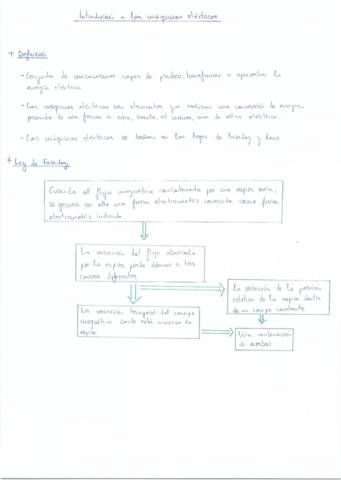 Introducción a las máquinas eléctricas
+ Definición
- Conjunto de mecanismos capaz de producir, transformar o aprovechar la
energía eléctrica
- Las máquinas eléctricas son elementos que realizan una conversión de energía,
pasando de una forma a otra, siendo, al menos, una de ellas eléctrica.
- Las máquinas eléctricas se basan en las leyes de Faraday y Lenz
+ Ley de Faraday
Cuando el flujo magnético concatenado por una espira varía,
se genera en ella una fuerza electromotriz conocida como fuerza
electromotriz inducida.
La variación del flujo abarcado
por la espira puede deberse a tres
causas diferentes
La variación de la posición
relativa de la espira dentro
de un campo constante
La variación temporal del campo
magnético donde está inmersa la
espira
Una combinación
de ambas